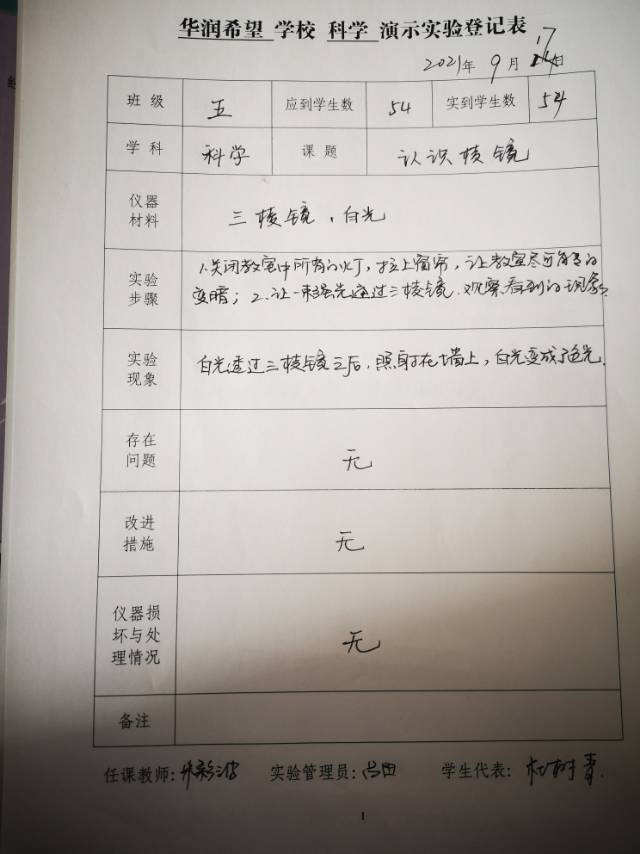 华润希望 学校 科学 演示实验登记表
2021年 9月 17日
班级 五 应到学生数 54 实到学生数 54
学科 科学 课题 认识棱镜
仪器材料 三棱镜、白光
实验步骤 1.关闭教室中所有的灯,拉上窗帘,让教室尽可能的
变暗;2.让一束强光通过三棱镜.观察看到的现象
实验现象 白光透过三棱镜之后,照射在墙上,白光变成了色光.
存在问题 无
改进措施 无
仪器损坏与处理情况 无
备注
任课教师: 实验管理员: 学生代表: 杜树青
1